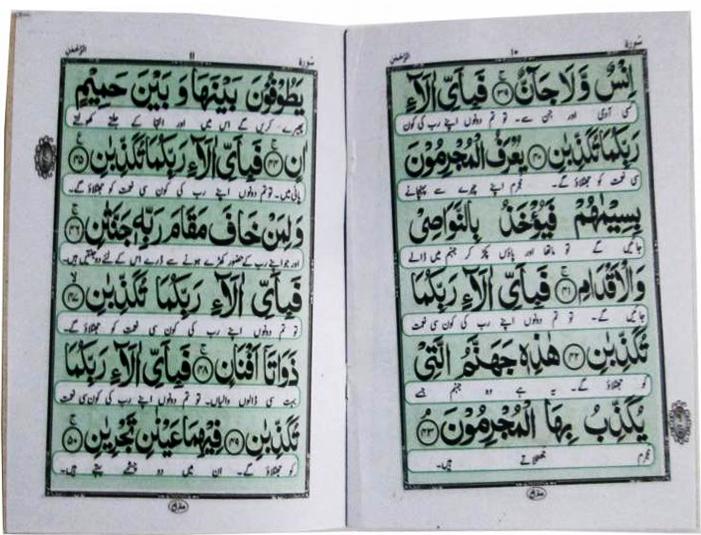 سُورَة ١٠ الرَّحْمٰن
اِنْسٌ وَّلَا جَآنٌّ ﴿٣٩﴾ فَبِاَيِّ اٰلَآءِ
کسی آدمی اور جن سے۔ تو تم دونوں اپنے رب کی کون
رَبِّكُمَا تُكَذِّبٰنِ ﴿٤٠﴾ يُعْرَفُ الْمُجْرِمُوْنَ
سی نعمت کو جھٹلاؤ گے۔ مجرم اپنے چہرے سے پہچانے
بِسِيْمٰهُمْ فَيُؤْخَذُ بِالنَّوَاصِيْ
جائیں گے تو ماتھا اور پاؤں پکڑ کر جہنم میں ڈالے
وَالْاَقْدَامِ ﴿٤١﴾ فَبِاَيِّ اٰلَآءِ رَبِّكُمَا
جائیں گے۔ تو تم دونوں اپنے رب کی کون سی نعمت
تُكَذِّبٰنِ ﴿٤٢﴾ هٰذِهٖ جَهَنَّمُ الَّتِيْ
کو جھٹلاؤ گے۔ یہ ہے وہ جہنم جسے
يُكَذِّبُ بِهَا الْمُجْرِمُوْنَ ﴿٤٣﴾
مجرم جھٹلاتے ہیں۔
سُورَة ١١ الرَّحْمٰن
يَطُوْفُوْنَ بَيْنَهَا وَ بَيْنَ حَمِيْمٍ
پھیرے کریں گے اس میں اور انتہا کے جلتے کھولتے
اٰنٍ ﴿٤٤﴾ فَبِاَيِّ اٰلَآءِ رَبِّكُمَا تُكَذِّبٰنِ ﴿٤٥﴾
پانی میں۔ تو تم دونوں اپنے رب کی کون سی نعمت کو جھٹلاؤ گے۔
وَلِمَنْ خَافَ مَقَامَ رَبِّهٖ جَنَّتٰنِ ﴿٤٦﴾
اور جو اپنے رب کے حضور کھڑے ہونے سے ڈرے اس کے لئے دو جنتیں ہیں۔
فَبِاَيِّ اٰلَآءِ رَبِّكُمَا تُكَذِّبٰنِ ﴿٤٧﴾
تو تم دونوں اپنے رب کی کون سی نعمت کو جھٹلاؤ گے۔
ذَوَاتَآ اَفْنَانٍ ﴿٤٨﴾ فَبِاَيِّ اٰلَآءِ رَبِّكُمَا
بہت سی ڈالوں والیاں۔ تو تم دونوں اپنے رب کی کون سی نعمت
تُكَذِّبٰنِ ﴿٤٩﴾ فِيْهِمَا عَيْنٰنِ تَجْرِيٰنِ ﴿٥٠﴾
کو جھٹلاؤ گے۔ ان میں دو چشمے بہتے ہیں۔